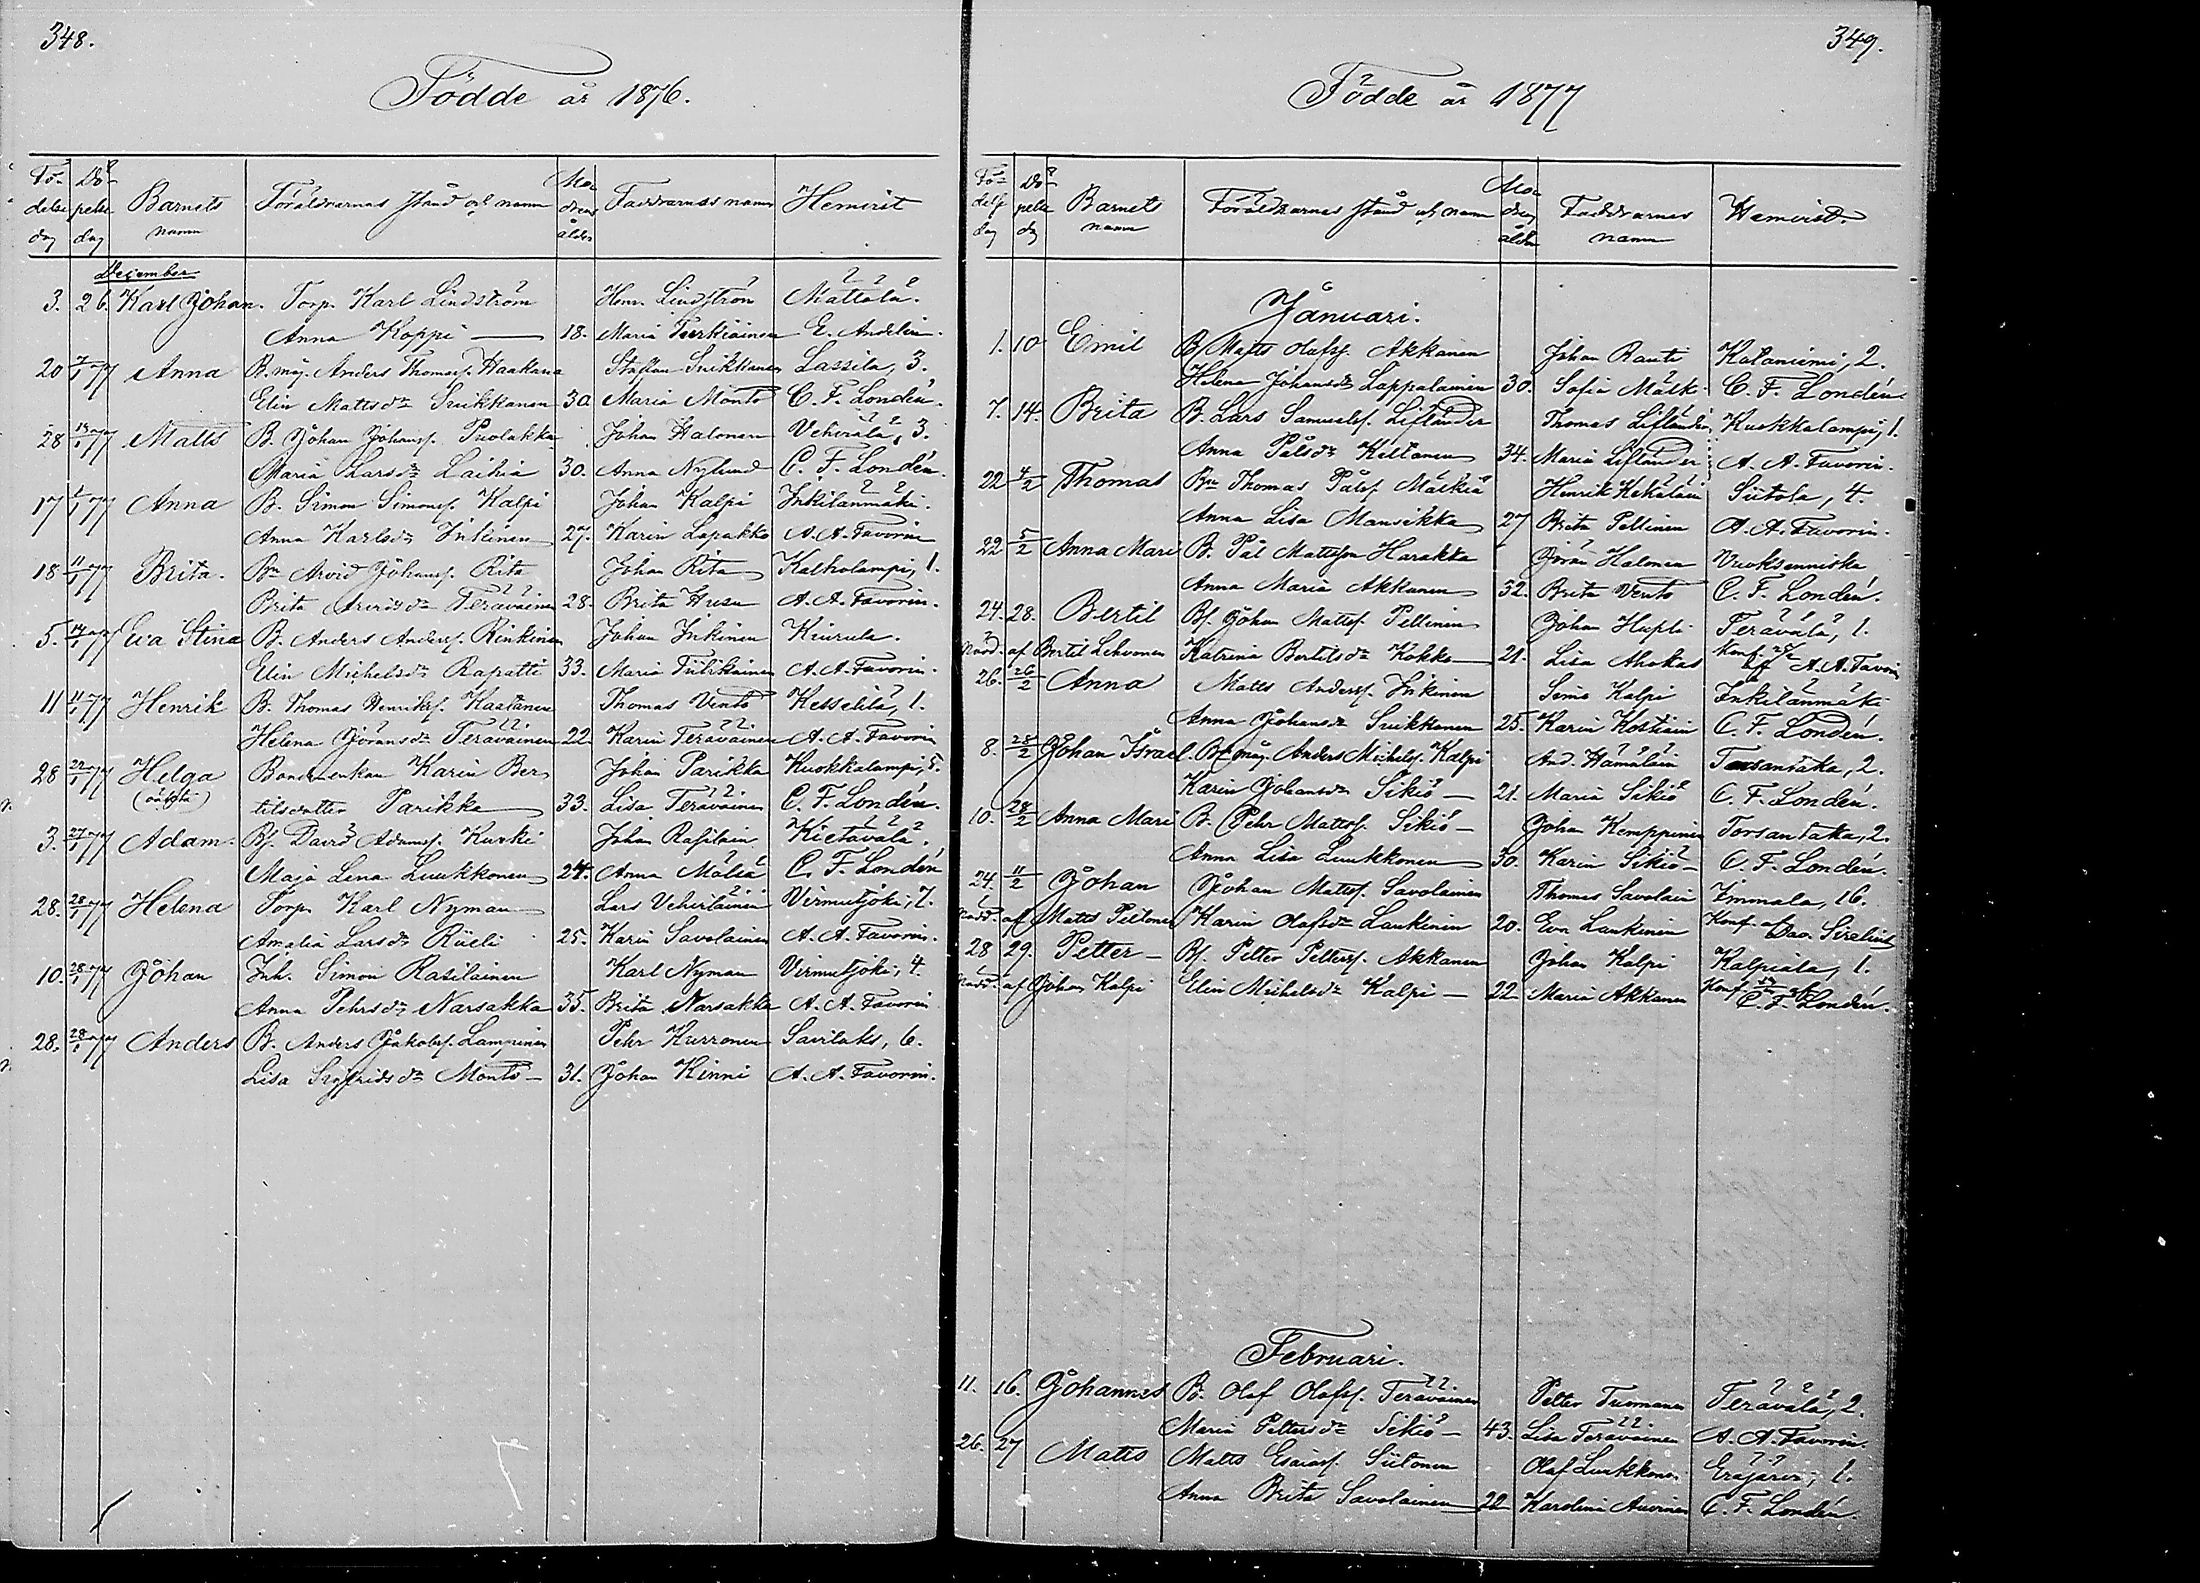 348.
Födde år 1876.
Fö- delse dag | Dö- pelse dag | Barnets namn | Föräldrarnas stånd och namn | Mo- drens ålder | Faddrarnas namn | Hemvist
December
3. 26. Karl Johan. Torp. Karl Lindström Henr. Lindström Mattala.
Anna Koppi — 18. Maria Turkiainen E. Andelin.
20 7/1 77 Anna B. måg. Anders Thomass. Haakana Staffan Suikkanen Lassila, 3.
Elin Mattsdr Suikkanen 30 Maria Monto C. F. Londén.
28 77 Matts B. Johan Johanss. Puolakka Johan Halonen Vehviälä, 3.
Maria Larsdr Laihia 30. Anna Nylund C. F. Londén.
17 77 Anna B. Simon Simonss. Kalpi Johan Kalpi Inkilänmäki.
Anna Karlsdr Inkinen 27. Karin Lapakko A. A. Favorin
18 11/1 77 Brita. Br Arvid Johanss. Rita Johan Rita Kalholampi, 1.
Brita Arvidsdr Teräväinen 28. Brita Husu A. A. Favorin.
5. 14/1 77 Eva Stina B. Anders Anderss. Rinkinen Johan Inkinen Kiurula.
Elin Michelsdr Rapatti 33. Maria Tiilikainen A. A. Favorin.
11 11/1 77 Henrik B. Thomas Henrikss. Kaatanen Thomas Vento Kesselilä, 1.
Helena Göransdr Teräväinen 22 Karin Teräväinen A. A. Favorin
28 22/1 77 Helga Bondeenkan Karin Ber Johan Parikka Kuokkalampi, 5.
(oäkta) tilsdotter Parikka 33. Lisa Teräväinen C. F. Londén.
3. 27/1 77 Adam. Bs. David Adamss. Kurki Johan Rasilain Kietävälä.
Maja Lena Luukkonen 24. Anna Mälia C. F. Londén
28. 28/1 77 Helena Torp. Karl Nyman Lars Vehviläinen Virmutjoki, 7.
Amalia Larsdr Rüeli 25. Karin Savolainen A. A. Favorin.
10. 28/1 77 Johan Inh. Simon Rasilainen Karl Nyman Virmutjoki, 4.
Anna Pehrsdr Narsakka 35. Brita Narsakka A. A. Favorin
28. 28/1 77 Anders B. Anders Jakobss. Lampinen Pehr Hurronen Sairlaks, 6.
Lisa Sigfridsdr Monto — 31. Johan Kinni A. A. Favorin.
349.
Födde år 1877
Fö- delse dag | Dö- pelse dag | Barnets namn | Föräldrarnas stånd och namn | Mo- drens ålder | Faddrarnas namn | Hemvist.
Januari.
1. 10 Emil B. Matts Olafss. Akkanen Johan Rauti Kataniemi, 2.
Helena Johansdr Lappalainen 30. Sofia Mäsk C. F. Londén.
7. 14. Brita B. Lars Samuelss. Lifländer Thomas Lifländer Kuokkalampi, 1.
Anna Pålsdr Kiltanen 34. Maria Lifländer A. A. Favorin.
22 4/2 Thomas Br Thomas Pålss. Mäskiä Henrik Kekäläin Siitola, 4.
Anna Lisa Mansikka 27 Brita Pellinen A. A. Favorin.
22 5/2 Anna Mari B. Pål Mattsson Harakka Göran Halonen Vuoksenniska
Anna Maria Akkanen 32. Brita Vento C. F. Londén.
24. 28. Bertil Bs. Johan Mattss. Pellinen Johan Hupli Terävälä, 1.
Nödd. af Bertil Lehvonen Katrina Bertilsdr Kokko — 21. Lisa Ahokas Konf. af A. A. Favorin
26. 26/2 Anna Matts Anderss. Inkinen Simo Kalpi Inkilänmäki
Anna Johansdr Suikkanen 25. Karin Kostiain C. F. Londén.
8. 28/2 Johan Israel. Bs måg. Anders Michelss. Kalpi And. Hämäläin Torsantaka, 2.
Karin Johansdr Sikiö — 21. Maria Sikiö C. F. Londén.
10. 28/2 Anna Mari B. Pehr Mattss. Sikiö — Johan Kemppinen Torsantaka, 2.
Anna Lisa Luukkonen 30. Karin Sikiö — C. F. Londén.
24. 11/2 Johan Johan Mattss. Savolainen Thomas Savolain Immala, 16.
Nödd. af Matts Peltonen Karin Olafsdr Laukinin 20. Eva Laukinin Konf. af Dav. Sirelius
28 29. Petter — Bs. Petter Petterss. Akkanen Johan Kalpi Kalpiala, 1.
Nödd. af Johan Kalpi Elin Michelsdr Kalpi — 22 Maria Akkanen Konf. af C. F. Londén.
Februari.
11. 16. Johannes B. Olaf Olafss. Teräväinen Petter Tuomanen Terävälä, 2.
Maria Pettersdr Sikiö — 43. Lisa Teräväinen A. A. Favorin.
26. 27 Matts Matts Esaiass. Siitonen Olaf Luukkonen Eräjärvi, 1.
Anna Brita Savolainen 22 Karolina Auvinen C. F. Londén.